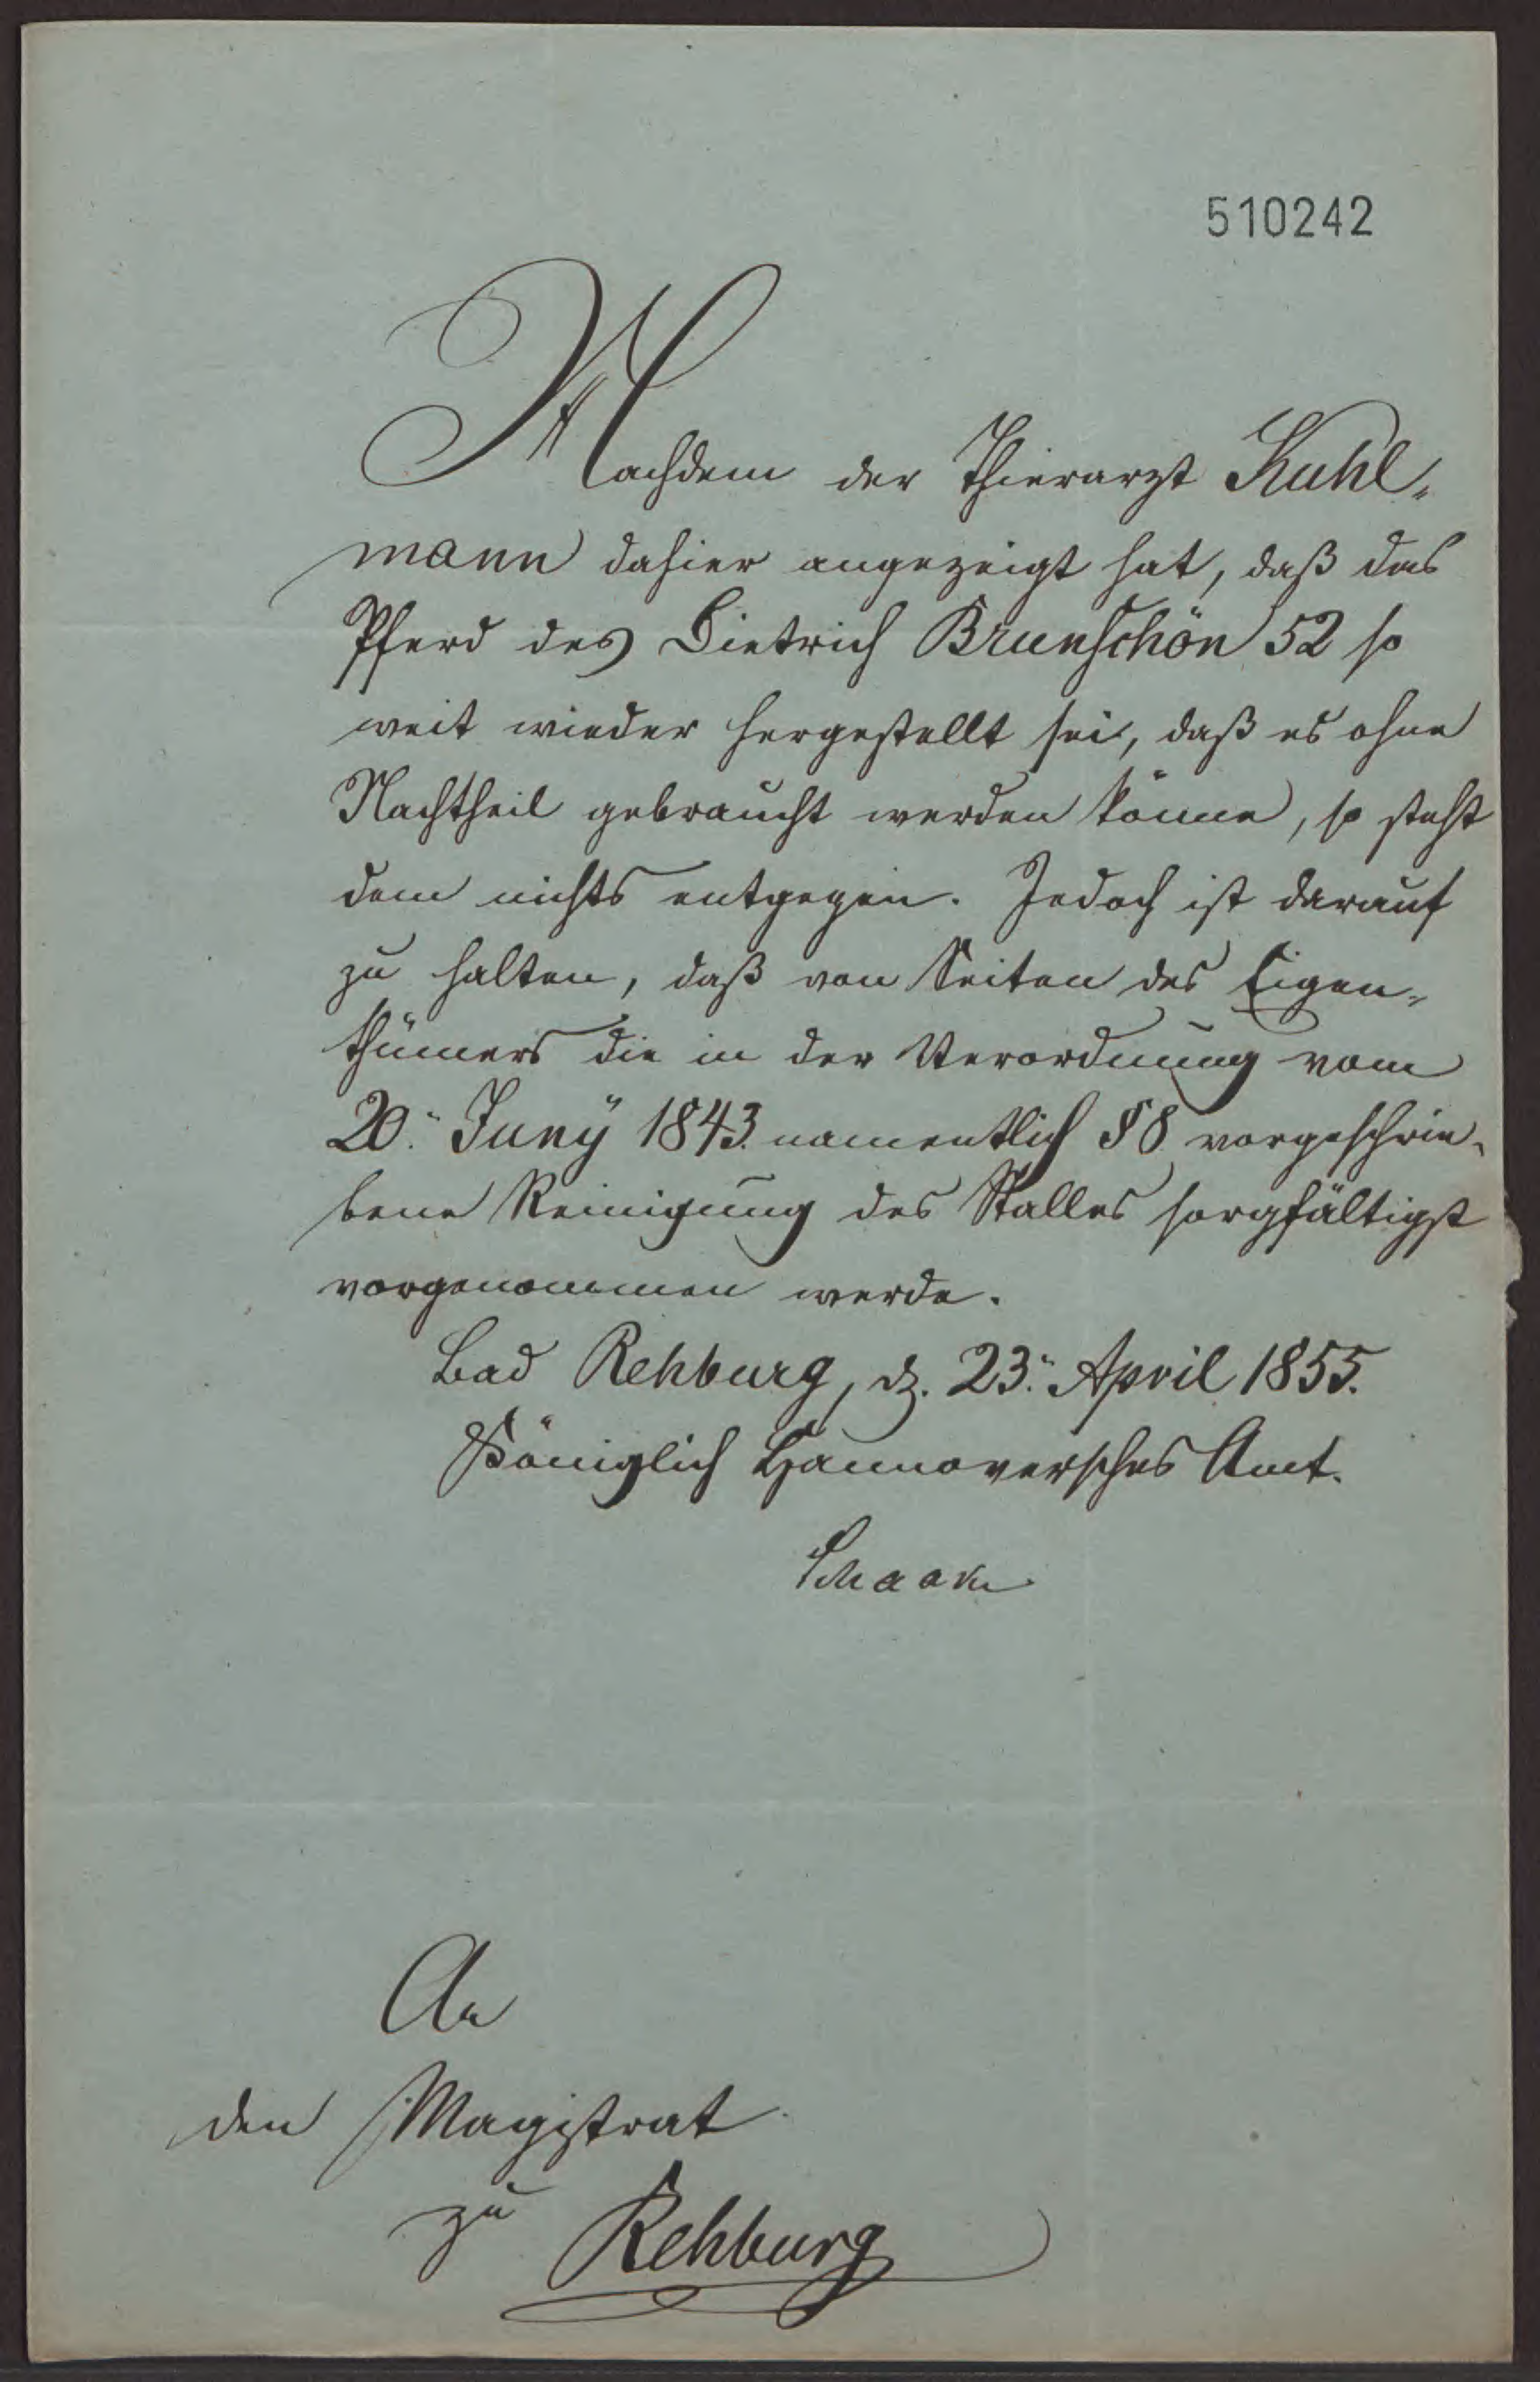 510242
Nachdem der Thierarzt Kuhl-
mann dahier angezeigt hat, daß das
Pferd des Dietrich Brunschön 52 so
weit wieder hergestellt sei, daß es ohne
Nachtheil gebraucht werden könne, so steht
dem nichts entgegen. Jedoch ist darauf
zu halten, daß von Seiten des Eigen-
thümers die in der Verordnung vom
20. Juny 1843. namentlich § 8 vorgeschrie-
bene Reinigung des Stalles sorgfältigst
vorgenommen werde.
Bad Rehburg, d. 23. April 1855.
Königlich Hannoversches Amt.
An
den Magistrat
zu Rehburg